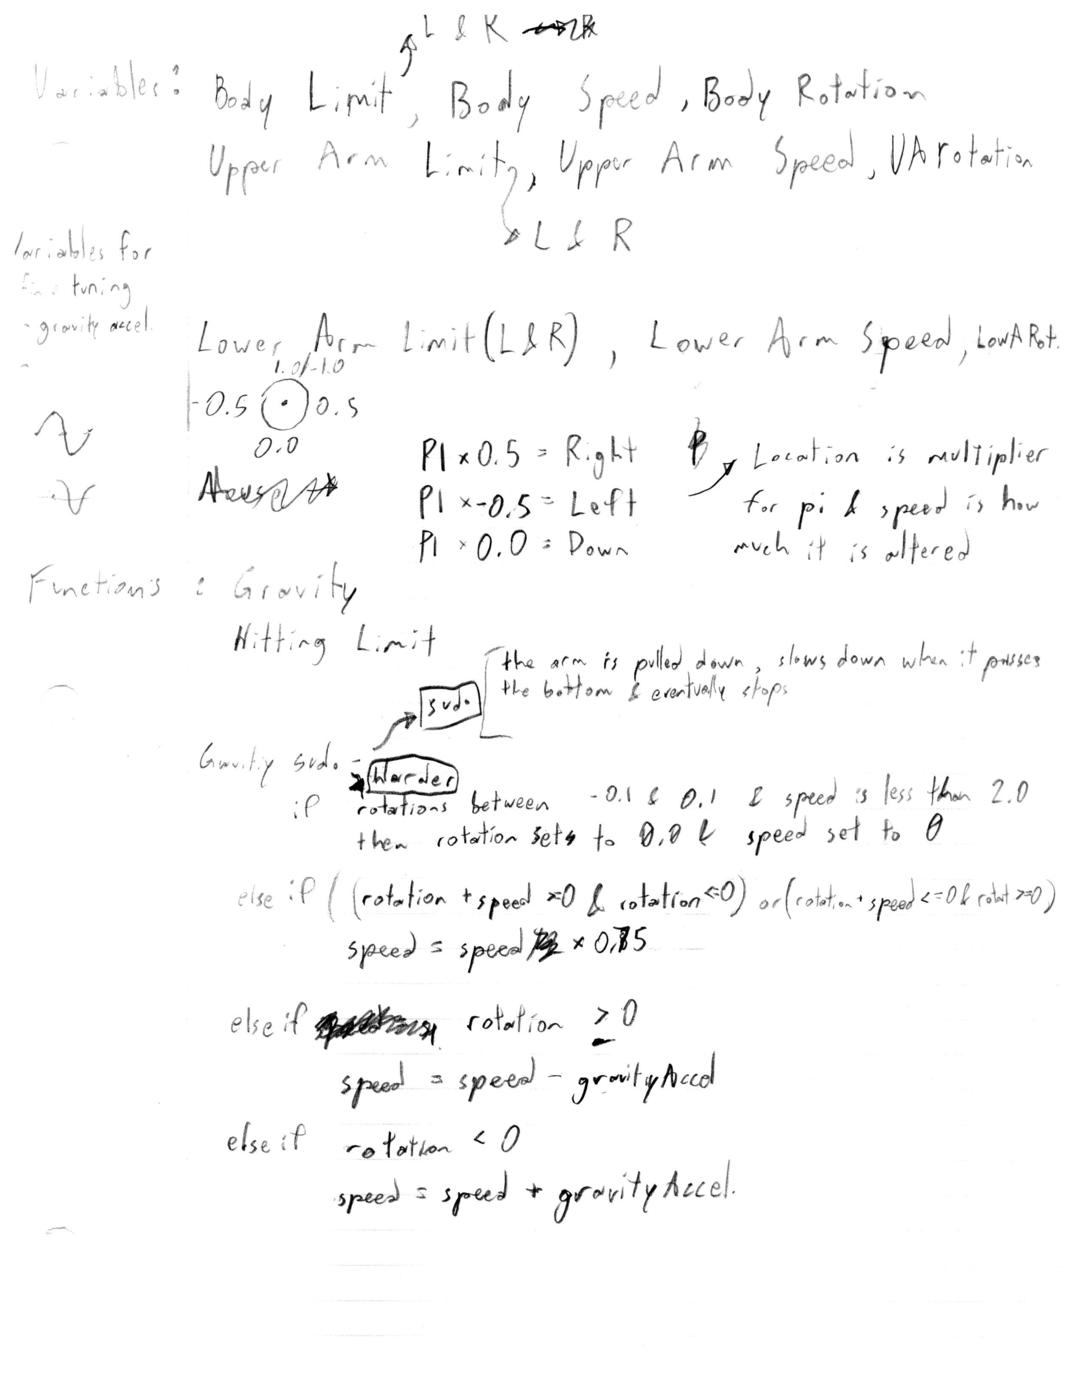 L & R
Variables: Body Limit, Body Speed, Body Rotation
Upper Arm Limit, Upper Arm Speed, UArotation
L & R
Variables for
fine tuning
- gravity accel.
Lower Arm Limit (L&R), Lower Arm Speed, LowARot.
1.0/-1.0
-0.5 0.5
0.0
PI x 0.5 = Right
PI x -0.5 = Left
PI x 0.0 = Down
Location is multiplier
for pi & speed is how
much it is altered
Functions: Gravity
Hitting Limit
the arm is pulled down, slows down when it passes
the bottom & eventually stops
sudo
Gravity sudo -
Harder
if rotations between -0.1 & 0.1 & speed is less than 2.0
then rotation sets to 0.0 & speed set to 0
else if ((rotation + speed >=0 & rotation <=0) or (rotation + speed <=0 & rotat >=0)
speed = speed x 0.75
else if rotation ≥ 0
speed = speed - gravityAccel
else if rotation < 0
speed = speed + gravityAccel.